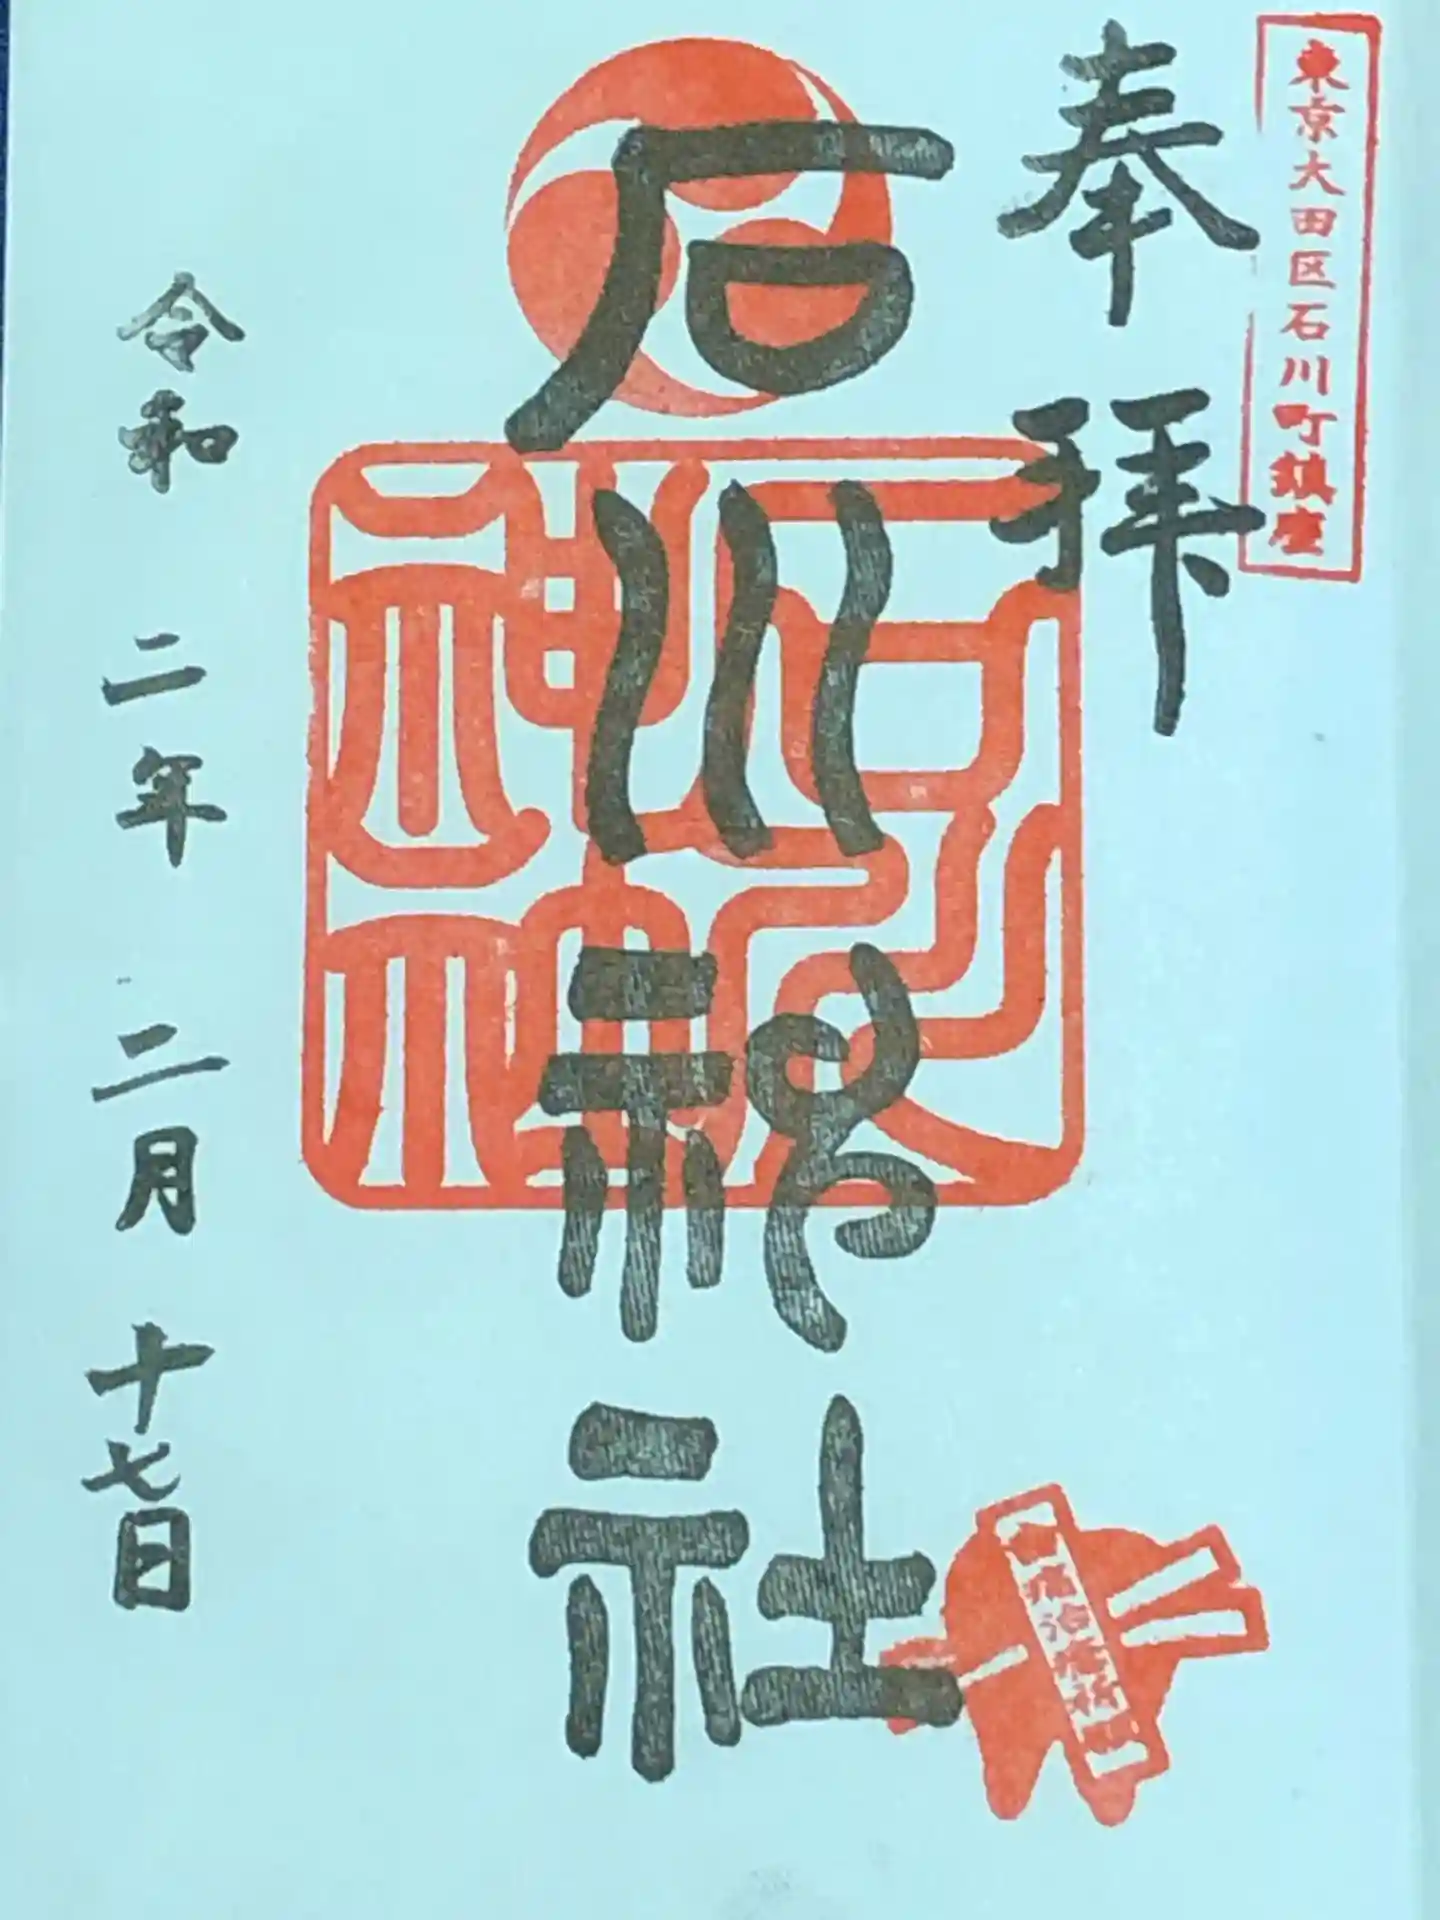 東京大田区石川町鎮座
奉拝
石川神社
令和二年二月十七日